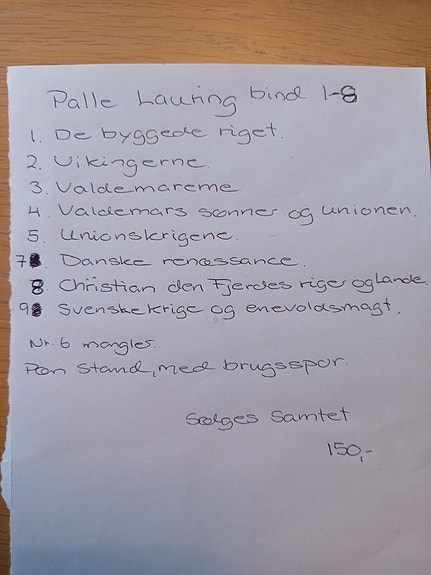 Palle Lauring bind 1-8
1. De byggede riget.
2. Vikingerne.
3. Valdemarerne
4. Valdemars sønner og unionen.
5. Unionskrigene.
7. Danske renæssance.
8 Christian den Fjerdes riger og Lande.
9 Svenskekrige og enevoldsmagt.
Nr. 6 mangler.
Pæn stand, med brugsspor.
Sælges Samtet
150,-